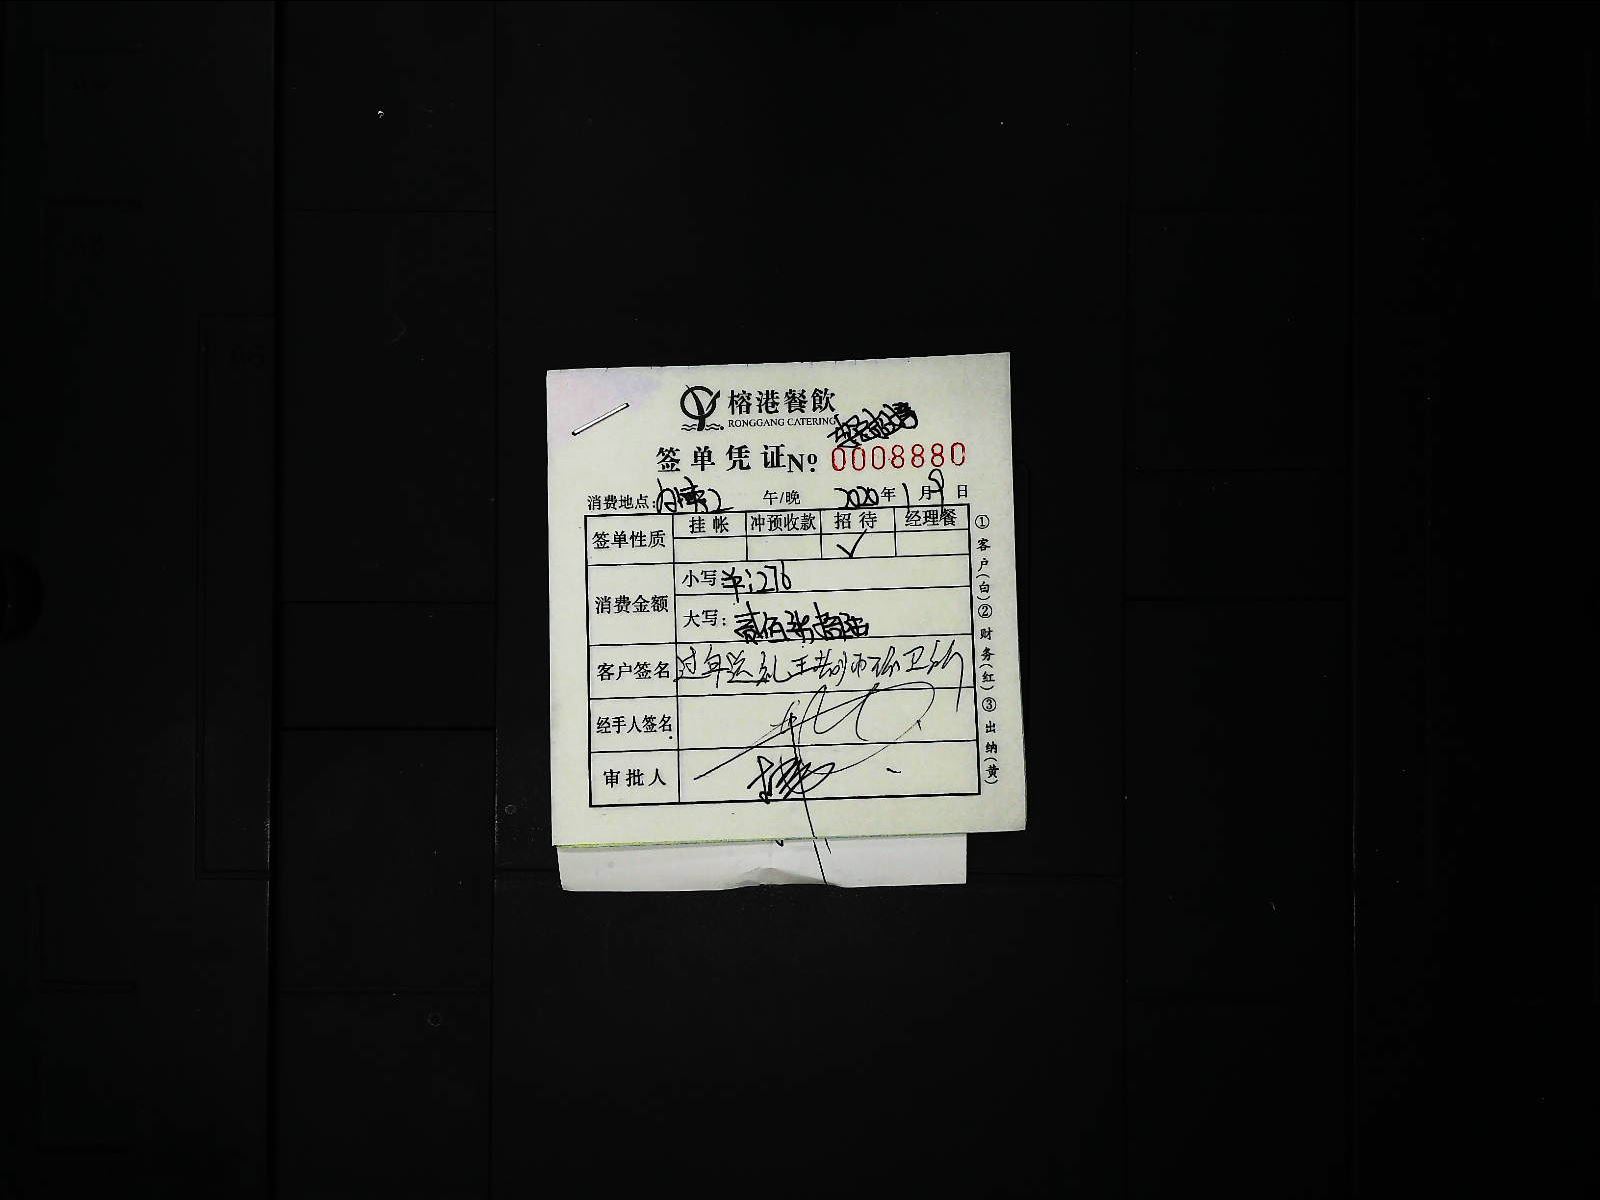 榕港餐飲
RONGGANG CATERING
签单凭证 № 0008880
消费地点: 午/晚 2020年1月9日
签单性质 挂帐 冲预收款 招待 经理餐
✓
消费金额 小写: 276
大写: 贰佰柒拾陆
客户签名 过年送礼王
经手人签名
审批人
①客户(白)②财务(红)③出纳(黄)